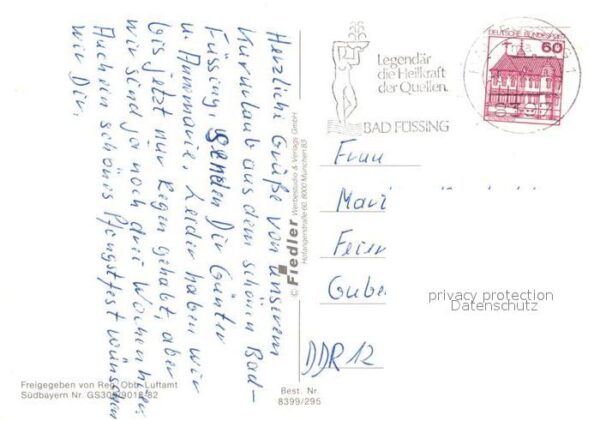 Herzliche Grüße von unserem
Kururlaub aus dem schönen Bad-
Füssing, senden Dir Günter
u. Annmarie. Leider haben wir
bis jetzt nur Regen gehabt, aber
wir sind ja noch drei Wochen hier.
Auch ein schönes Pfingstfest wünschen
wir Dir.
Legendär
die Heilkraft
der Quellen.
BAD FÜSSING
DEUTSCHE BUNDESPOST
60
© Fiedler Werbestudio & Verlags GmbH
Hofangerstraße 60, 8000 München 83
Frau
Mari
Feier
Gube
DDR 12
privacy protection
Datenschutz
Freigegeben von Reg. Obb. Luftamt
Südbayern Nr. GS300/9018-82
Best. Nr.
8399/295